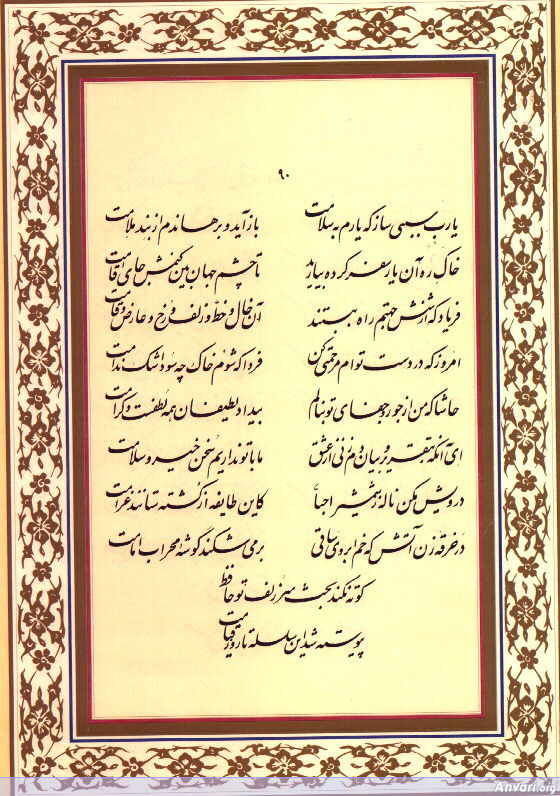 ۹۰
یارب سببی ساز که یارم به سلامت	بازآید و برهاندم از بند ملامت
خاک ره آن یار سفر کرده بیارید	تا چشم جهان بین کنمش جای اقامت
فریاد که از شش جهتم راه ببستند	آن خال و خط و زلف و رخ و عارض و قامت
امروز که در دست توام مرحمتی کن	فردا که شوم خاک چه سود اشک ندامت
حاشا که من از جور و جفای تو بنالم	بیداد لطیفان همه لطفست و کرامت
ای آنکه بتقریر و بیان دم زنی از عشق	ما با تو نداریم سخن خیر و سلامت
درویش مکن ناله ز شمشیر احبا	کاین طایفه از کشته ستانند غرامت
در خرقه زن آتش که خم ابروی ساقی	بر می شکند گوشه محراب امامت
کوته نکند بحث سر زلف تو حافظ
پیوسته شد این سلسله تا روز قیامت
Anvari.org